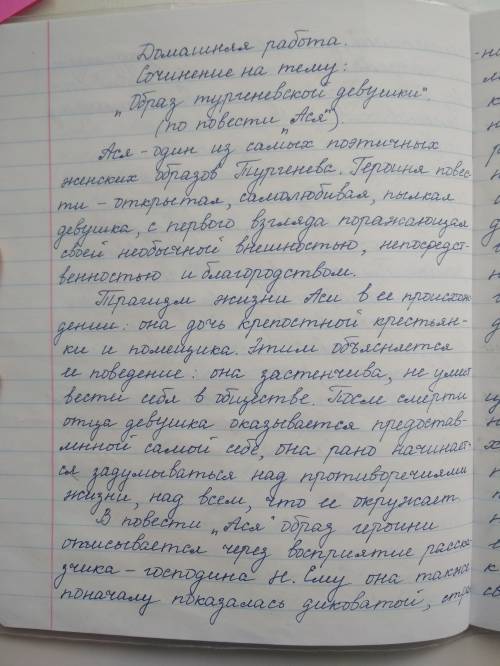 Домашняя работа.
Сочинение на тему:
„Образ тургеневской девушки".
(по повести „Ася").
Ася - один из самых поэтичных
женских образов Тургенева. Героиня повес-
ти - открытая, самолюбивая, пылкая
девушка, с первого взгляда поражающая
своей необычной внешностью, непосредст-
венностью и благородством.
Трагизм жизни Аси в ее происхож-
дении: она дочь крепостной крестьян-
ки и помещика. Этим объясняется
ее поведение: она застенчива, не умеет
вести себя в обществе. После смерти
отца девушка оказывается предостав-
ленной самой себе, она рано начинает-
ся задумываться над противоречиями
жизни, над всем, что ее окружает
В повести „Ася" образ героини
описывается через восприятие расска-
зчика - господина Н. Ему она также
поначалу показалась диковатой, стра